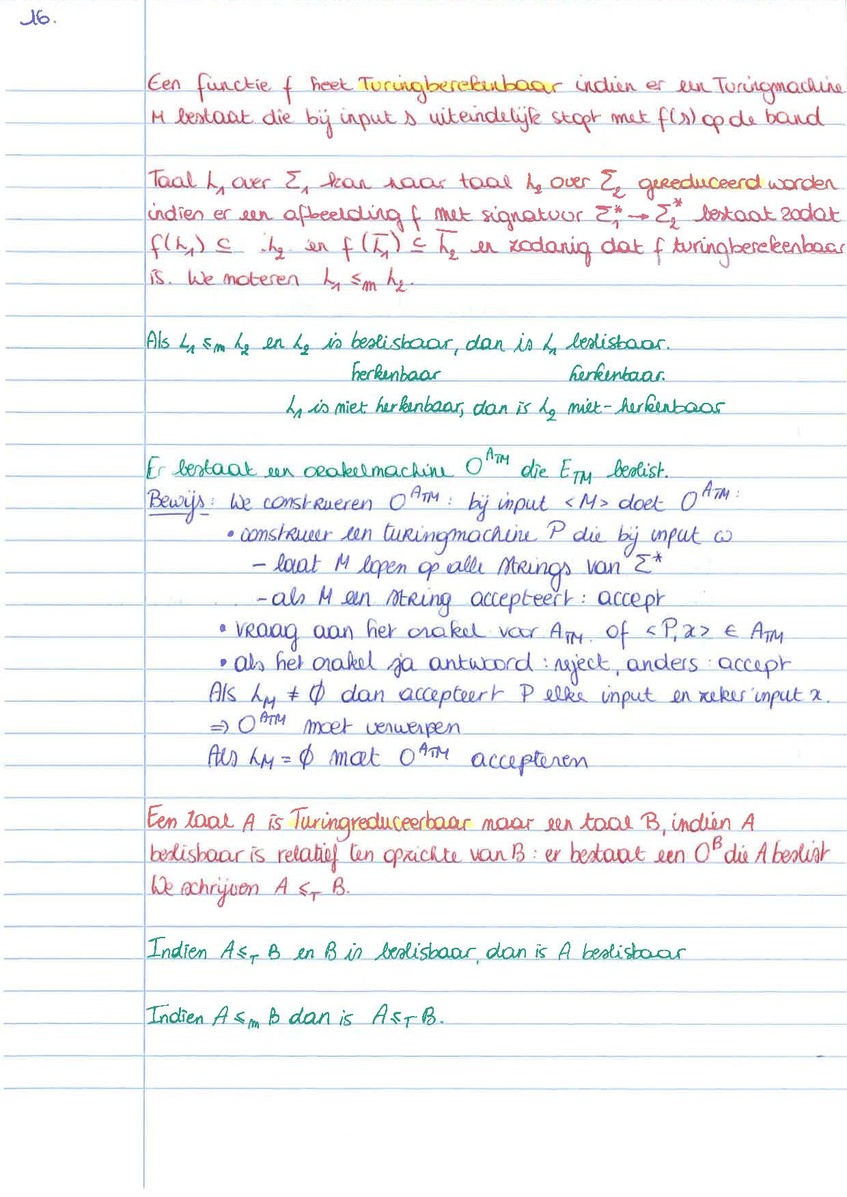 16.
Een functie f heet Turingberekenbaar indien er een Turingmachine
M bestaat die bij input s uiteindelijk stopt met f(s) op de band
Taal L₁ over Σ₁ kan naar taal L₂ over Σ₂ gereduceerd worden
indien er een afbeelding f met signatuur Σ₁* → Σ₂* bestaat zodat
f(L₁) ⊆ L₂ en f(L̅₁) ⊆ L̅₂ en zodanig dat f turingberekenbaar
is. We noteren L₁ ≤ₘ L₂.
Als L₁ ≤ₘ L₂ en L₂ is beslisbaar, dan is L₁ beslisbaar.
herkenbaar herkenbaar.
L₁ is niet herkenbaar, dan is L₂ niet-herkenbaar
Er bestaat een orakelmachine O^A_TM die E_TM beslist.
Bewijs: We construeren O^A_TM: bij input <M> doet O^A_TM:
• construeer een turingmachine P die bij input ω
- laat M lopen op alle strings van Σ*
- als M een string accepteert: accept
• vraag aan het orakel voor A_TM of <P,x> ∈ A_TM
• als het orakel ja antwoord: reject, anders: accept
Als L_M ≠ ∅ dan accepteert P elke input en zeker input x.
⇒ O^A_TM moet verwerpen
Als L_M = ∅ moet O^A_TM accepteren
Een taal A is Turingreduceerbaar naar een taal B, indien A
beslisbaar is relatief ten opzichte van B: er bestaat een O^B die A beslist
We schrijven A ≤_T B.
Indien A ≤_T B en B is beslisbaar, dan is A beslisbaar
Indien A ≤ₘ B dan is A ≤_T B.